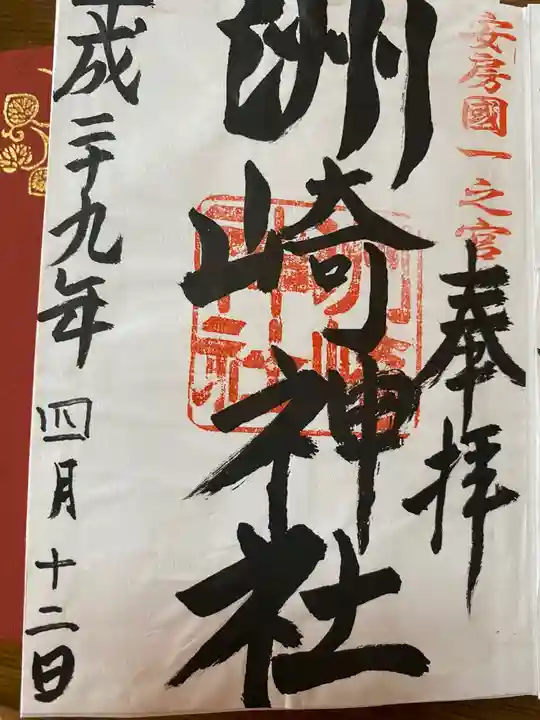 安房國一之宮
奉拝
洲崎神社
洲崎神社
平成二十九年四月十二日